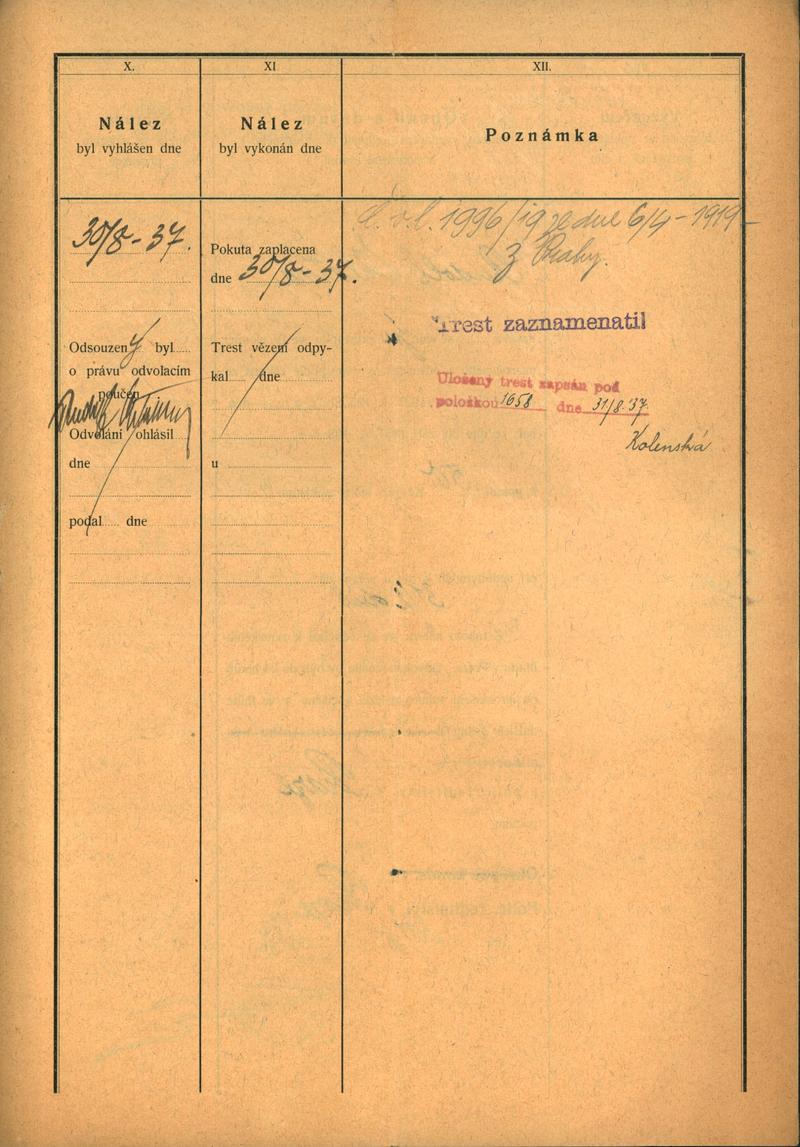 X.
Nález
byl vyhlášen dne
30/8 - 37.
Odsouzený byl
o právu odvolacím
poučen
Odvolání ohlásil
dne
podal dne
XI
Nález
byl vykonán dne
Pokuta zaplacena
dne 30/8 - 37.
Trest vězení odpy-
kal dne
u
XII.
Poznámka
1996/19 ze dne 6/4 - 1919
z Prahy.
Trest zaznamenati!
Uložený trest zapsán pod
položkou 1658 dne 31/8. 37.
Kolenská